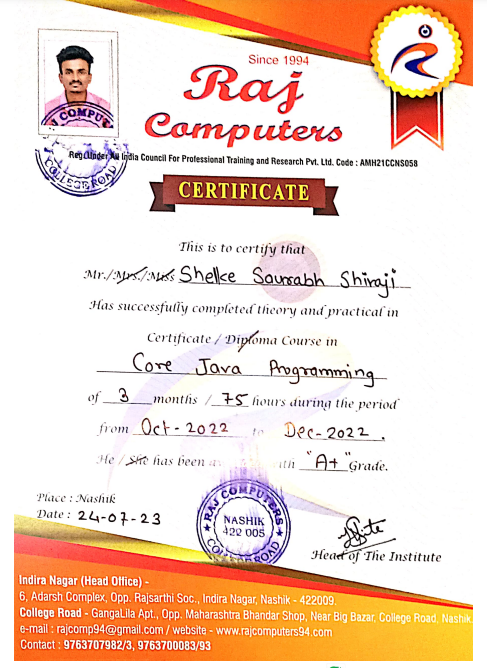 Since 1994
Raj
Computers
Reg. Under All India Council For Professional Training and Research Pvt. Ltd. Code : AMH21CCNS058
CERTIFICATE
This is to certify that
Mr./Mrs./Miss Shelke Saurabh Shivaji
Has successfully completed theory and practical in
Certificate / Diploma Course in
Core Java Programming
of 3 months / 75 hours during the period
from Oct-2022 to Dec-2022.
He / She has been with "A+" Grade.
Place : Nashik
Date : 24-07-23
RAJ COMPUTERS
NASHIK
422 005
COLLEGE ROAD
Head of The Institute
Indira Nagar (Head Office) -
6, Adarsh Complex, Opp. Rajsarthi Soc., Indira Nagar, Nashik - 422009.
College Road - GangaLila Apt., Opp. Maharashtra Bhandar Shop, Near Big Bazar, College Road, Nashik
e-mail : rajcomp94@gmail.com / website - www.rajcomputers94.com
Contact : 9763707982/3, 9763700083/93